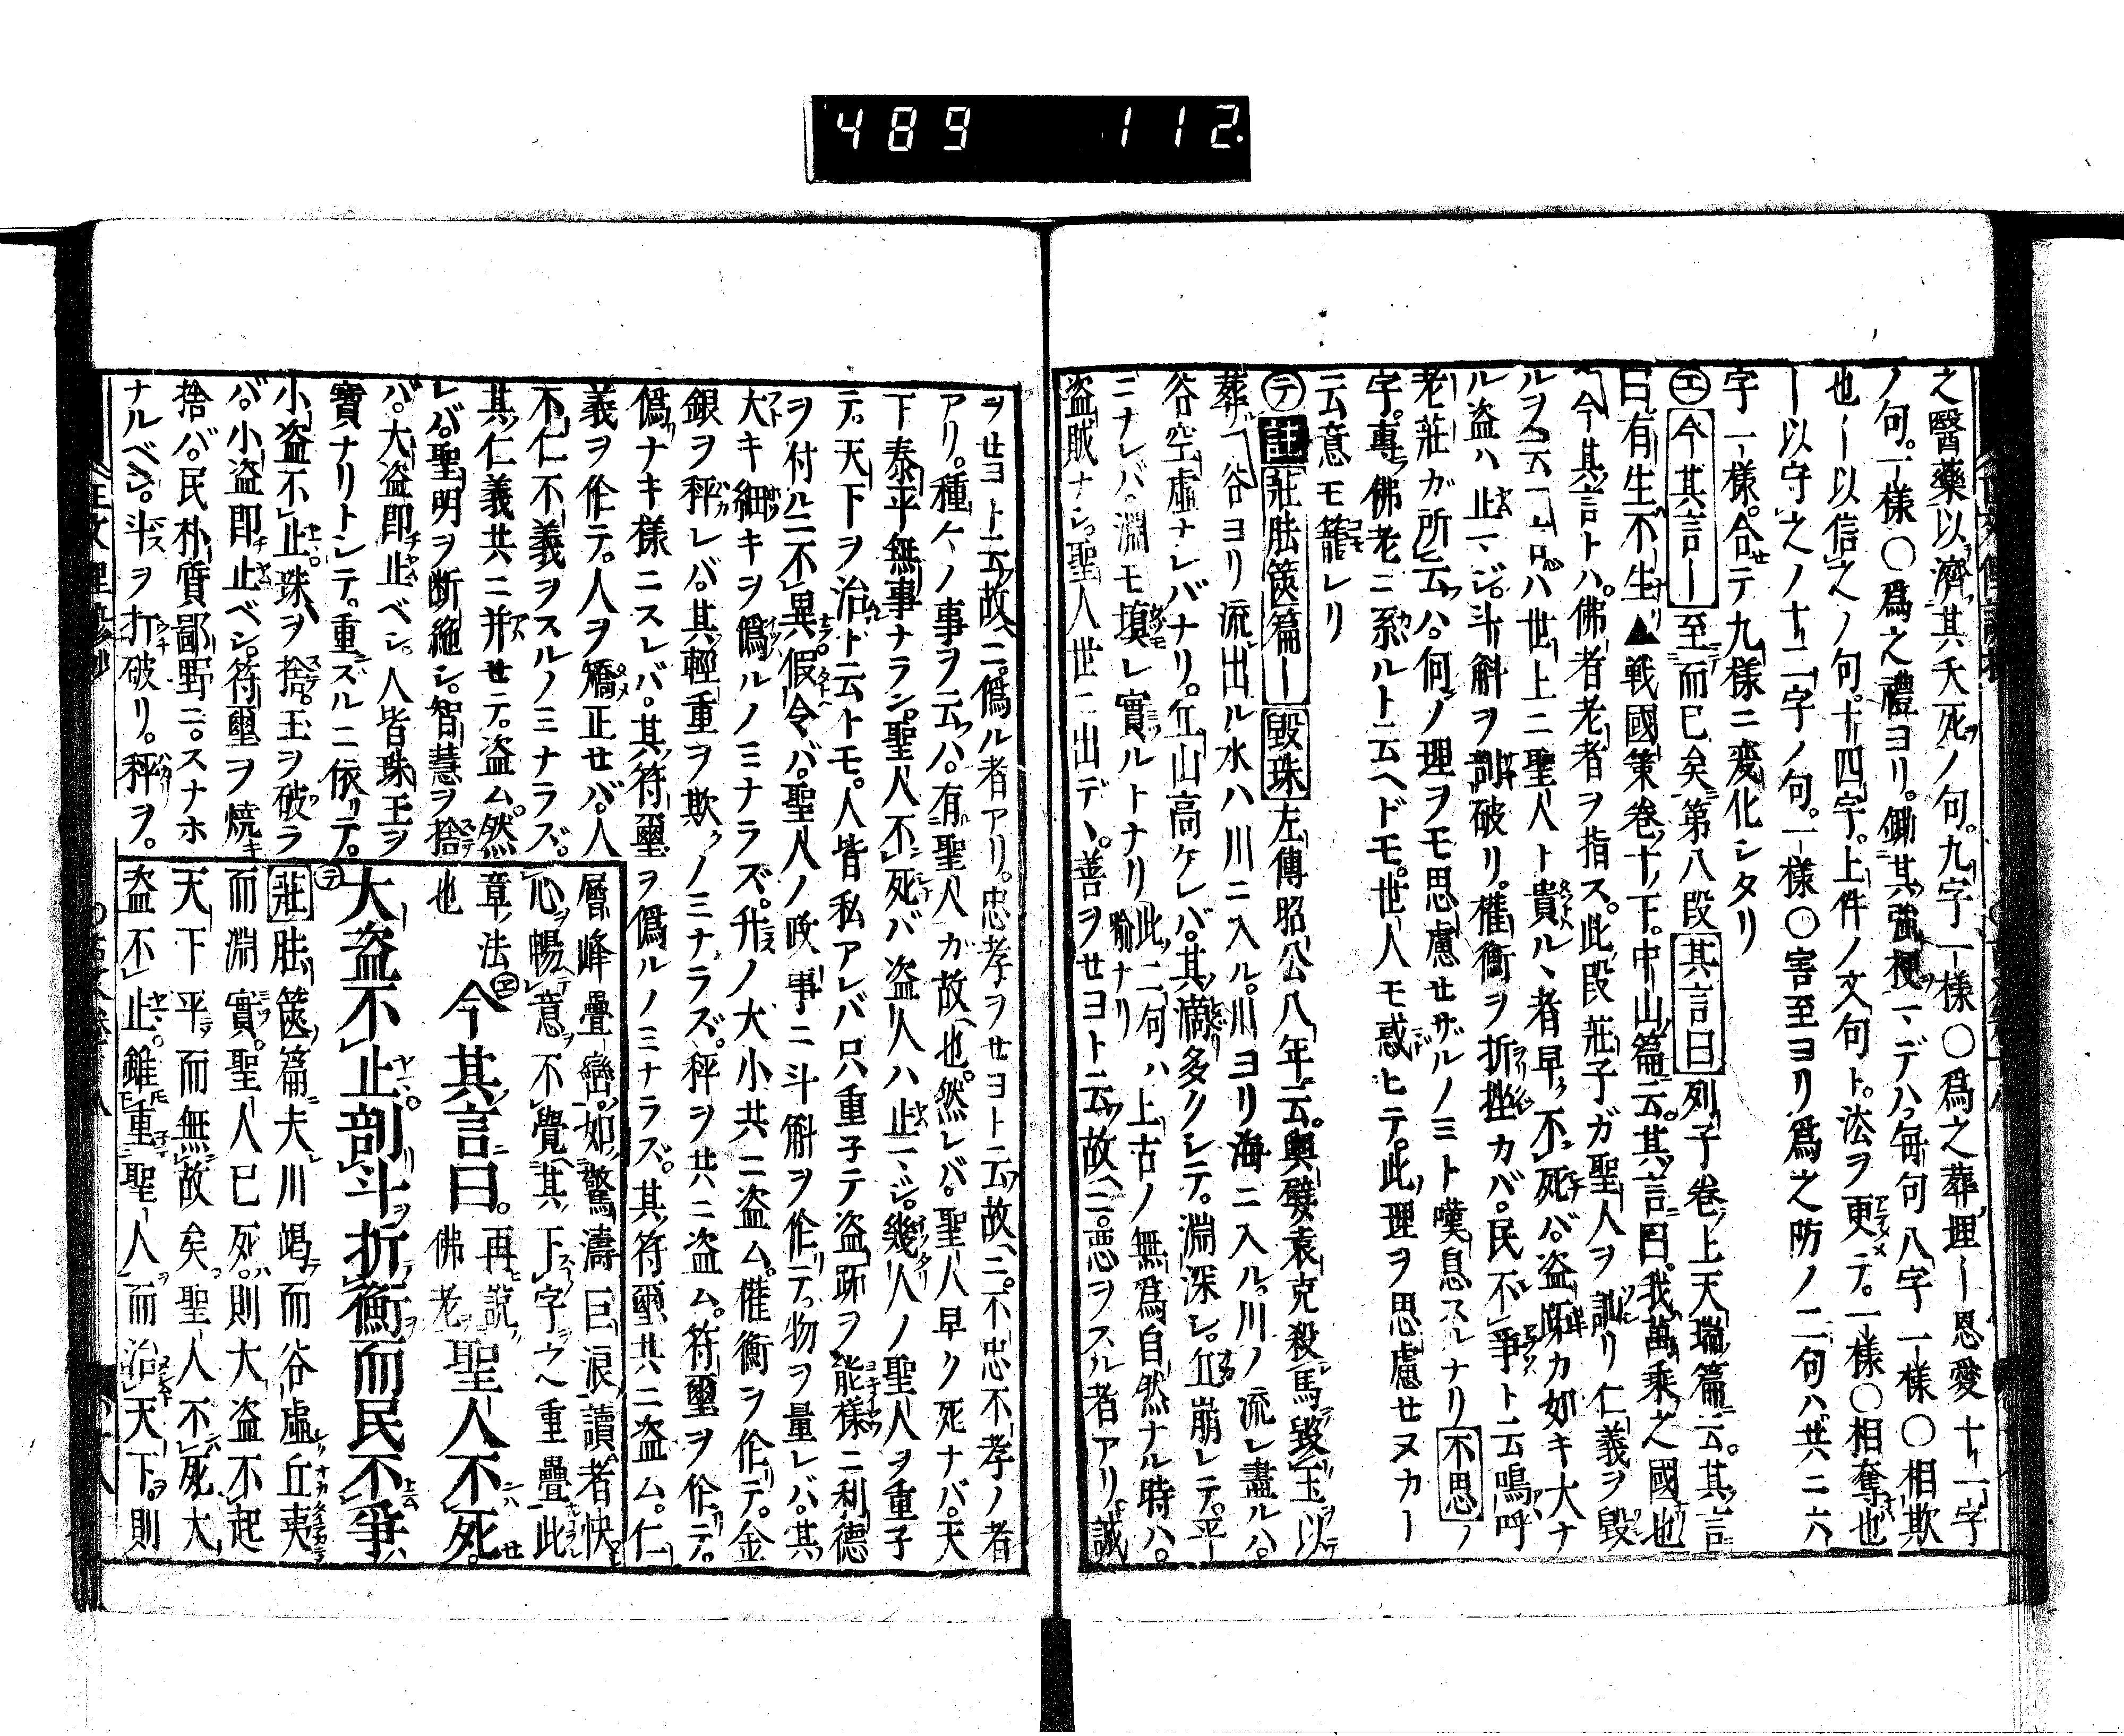 489 112
之醫藥以濟其夭死ノ句。九字一樣〇爲之葬埋ー恩愛十一字
ノ句。一樣〇爲之禮ヨリ。鋤其強梗マデハ毎句八字一樣〇相欺
也ー以信之ノ句。十四字。上件ノ文句ト。法ヲ更テ。一樣〇相奪也
ー以守之ノ十二字ノ句。一樣〇害至ヨリ爲之防ノ二句ハ共ニ六
字一樣。合テ九樣ニ変化シタリ
㋓今其言ー至而已矣第八段其言曰列子卷上天瑞篇云。其言
曰有生不生▲戰國策卷十下。中山篇云。其言曰。我萬乘之國也
今其言トハ。佛者老者ヲ指ス。此段莊子ガ聖人ヲ訕リ仁義ヲ毀
ルヲ云コロハ世上ニ聖人ト貴ル、者早ク不死バ。盗跡カ如キ大ナ
ル盗ハ止マジ。斗斛ヲ剖破リ。權衡ヲ折挫カバ。民不爭ト云嗚呼
老莊ガ所云ハ。何ノ理ヲモ思慮セザルノミト嘆息スルナリ不思ノ
字。專佛老ニ系ルト云ヘドモ。世人モ惑ヒテ。此理ヲ思慮セヌカー
云意モ籠レリ
㋢註莊胠篋篇ー毀珠左傳昭公八年云。輿嬖袁克殺馬毀玉以
葬谷ヨリ流出ル水ハ川ニ入ル。川ヨリ海ニ入ル。川ノ流レ盡ルハ。
谷空虛ナレバナリ。丘山高ケレバ。其滴多クシテ。淵深シ。丘崩レテ。平
ニナレバ。淵モ塡レ實ルトナリ此二句ハ上古ノ無爲自然ナル時ハ。
盗賊ナシ。聖人世ニ出デ、。善ヲセヨト云故ニ。悪ヲスル者アリ。誠
ヲセヨト云故ニ。僞ル者アリ。忠孝ヲセヨト云故ニ。不忠不孝ノ者
アリ。種々ノ事ヲ云ハ。有聖人ガ故也。然レバ。聖人早ク死ナバ。天
下泰平無事ナラン。聖人不死バ盗人ハ止マジ。幾人ノ聖人ヲ重子
テ。天下ヲ治ト云トモ。人皆私アレバ只重子テ盗跡ヲ能樣ニ利德
ヲ付ルニ不異假令バ。聖人ノ政事ニ斗斛ヲ作テ。物ヲ量レバ。其
大キ細キヲ僞ルノミナラズ。升ノ大小共ニ盗ム。權衡ヲ作テ。金
銀ヲ秤レバ。其輕重ヲ欺クノミナラズ。秤ヲ共ニ盗ム。符璽ヲ作テ。
僞ナキ樣ニスレバ。其符璽ヲ僞ルノミナラズ。其符璽共ニ盗ム。仁
義ヲ作テ。人ヲ矯正セバ。人
不仁不義ヲスルノミナラズ。
其仁義共ニ并セテ。盗ム。然
レバ。聖明ヲ断絶シ。智慧ヲ捨
バ。大盗即止ベシ。人皆珠玉ヲ
寶ナリトシテ。重ズルニ依リテ。
小盗不止珠ヲ捨。玉ヲ破ラ
バ。小盗即止ベシ。符璽ヲ焼キ
捨バ。民朴質鄙野ニ。スナホ
ナルベシ。斗ヲ打破リ。秤ヲ。
層峰疊巒。如驚濤巨浪讀者快
心暢意不覺其下字之重疊此
章法㋓今其言曰。再說佛老聖人不死。
也
㋢大盗不止剖斗折衡而民不爭
莊胠篋篇夫川竭而谷虛丘夷
而淵實。聖人已死。則大盗不起
天下平而無故矣。聖人不死大
盗不止。雖重聖人而治天下。則